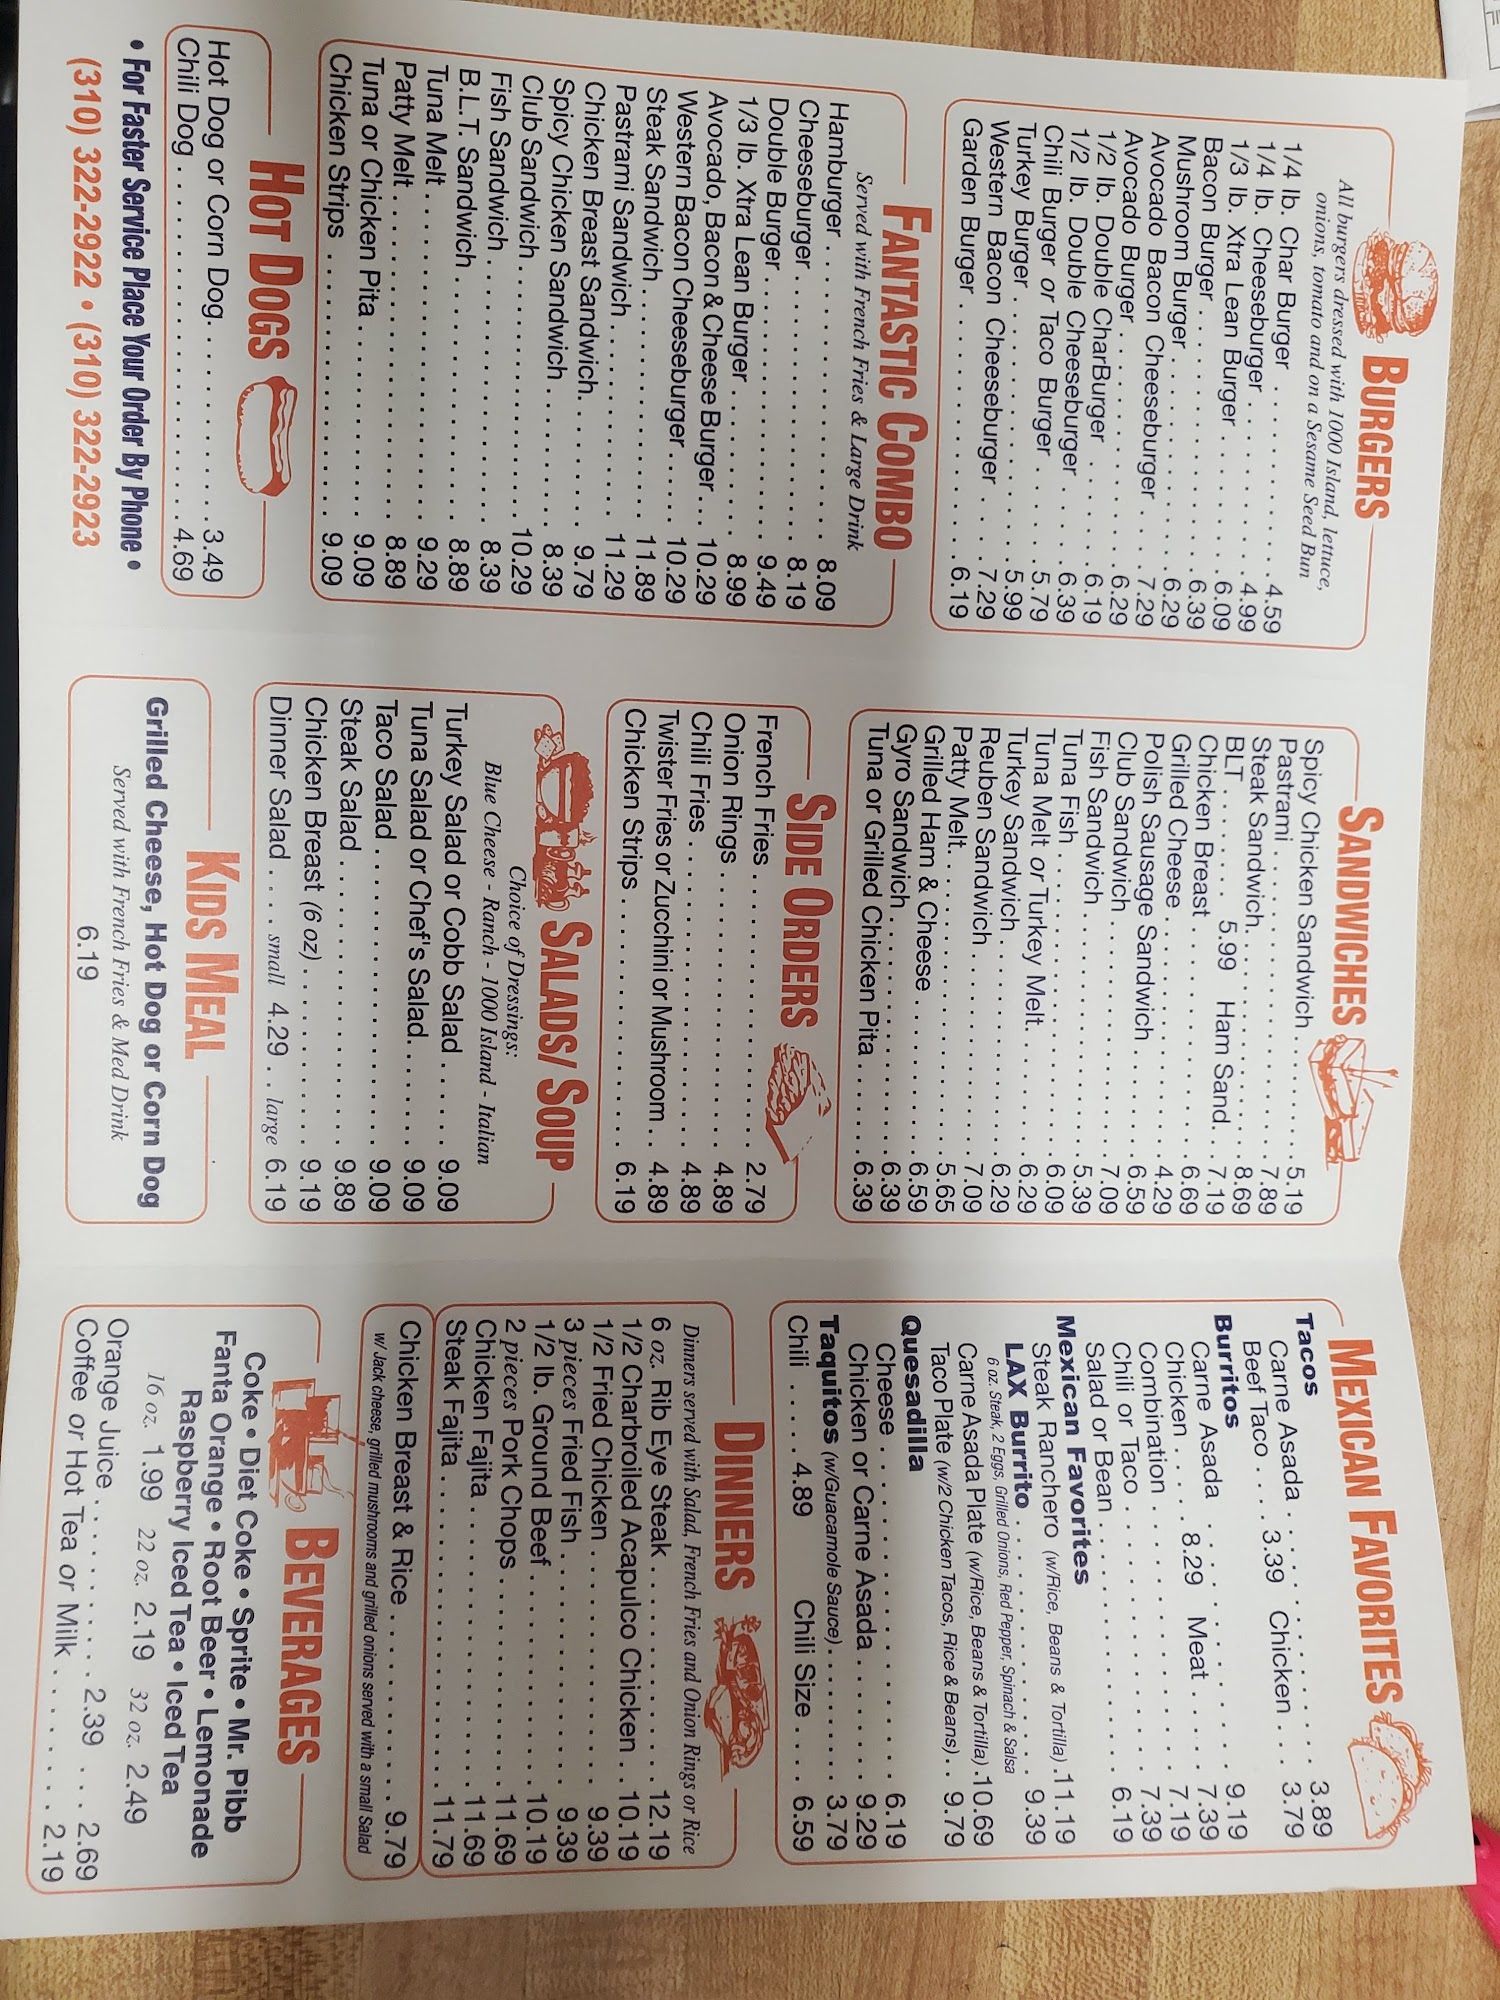 BURGERS
All burgers dressed with 1000 Island, lettuce,
onions, tomato and on a Sesame Seed Bun
1/4 lb. Char Burger . . . . . . . . . . . 4.59
1/4 lb. Cheeseburger . . . . . . . . . . 4.99
1/3 lb. Xtra Lean Burger . . . . . . . . 6.09
Bacon Burger . . . . . . . . . . . . . . 6.39
Mushroom Burger . . . . . . . . . . . . 6.29
Avocado Bacon Cheeseburger . . . . 7.29
Avocado Burger . . . . . . . . . . . . . 6.29
1/2 lb. Double CharBurger . . . . . . 6.19
1/2 lb. Double Cheeseburger . . . . 6.39
Chili Burger or Taco Burger . . . . . 5.79
Turkey Burger . . . . . . . . . . . . . . 5.99
Western Bacon Cheeseburger . . . . 7.29
Garden Burger . . . . . . . . . . . . . . 6.19
FANTASTIC COMBO
Served with French Fries & Large Drink
Hamburger . . . . . . . . . . . . . . . . 8.09
Cheeseburger . . . . . . . . . . . . . . 8.19
Double Burger . . . . . . . . . . . . . . 9.49
1/3 lb. Xtra Lean Burger . . . . . . . 8.99
Avocado, Bacon & Cheese Burger . . 10.29
Western Bacon Cheeseburger . . . . 10.29
Steak Sandwich . . . . . . . . . . . . . 11.89
Pastrami Sandwich . . . . . . . . . . . 11.29
Chicken Breast Sandwich . . . . . . . 9.79
Spicy Chicken Sandwich . . . . . . . . 8.39
Club Sandwich . . . . . . . . . . . . . . 10.29
Fish Sandwich . . . . . . . . . . . . . . 8.39
B.L.T. Sandwich . . . . . . . . . . . . . 8.89
Tuna Melt . . . . . . . . . . . . . . . . . 9.29
Patty Melt . . . . . . . . . . . . . . . . . 8.89
Tuna or Chicken Pita . . . . . . . . . . 9.09
Chicken Strips . . . . . . . . . . . . . . 9.09
HOT DOGS
Hot Dog or Corn Dog . . . . . . . . . . 3.49
Chili Dog . . . . . . . . . . . . . . . . . . 4.69
• For Faster Service Place Your Order By Phone •
(310) 322-2922 • (310) 322-2923
SANDWICHES
Spicy Chicken Sandwich . . . . . . . . 5.19
Pastrami . . . . . . . . . . . . . . . . . . 7.89
Steak Sandwich . . . . . . . . . . . . . 8.69
BLT . . . . . . . 5.99 Ham Sand . . 7.19
Chicken Breast . . . . . . . . . . . . . . 6.69
Grilled Cheese . . . . . . . . . . . . . . 4.29
Polish Sausage Sandwich . . . . . . . 6.59
Club Sandwich . . . . . . . . . . . . . . 7.09
Fish Sandwich . . . . . . . . . . . . . . 5.39
Tuna Fish . . . . . . . . . . . . . . . . . 6.09
Tuna Melt or Turkey Melt . . . . . . . 6.29
Turkey Sandwich . . . . . . . . . . . . 6.29
Reuben Sandwich . . . . . . . . . . . . 7.09
Patty Melt . . . . . . . . . . . . . . . . . 5.65
Grilled Ham & Cheese . . . . . . . . . 6.59
Gyro Sandwich . . . . . . . . . . . . . . 6.39
Tuna or Grilled Chicken Pita . . . . . 6.39
SIDE ORDERS
French Fries . . . . . . . . . . . . . . . . 2.79
Onion Rings . . . . . . . . . . . . . . . . 4.89
Chili Fries . . . . . . . . . . . . . . . . . 4.89
Twister Fries or Zucchini or Mushroom . . 4.89
Chicken Strips . . . . . . . . . . . . . . 6.19
SALADS/ SOUP
Choice of Dressings:
Blue Cheese - Ranch - 1000 Island - Italian
Turkey Salad or Cobb Salad . . . . . 9.09
Tuna Salad or Chef's Salad . . . . . . 9.09
Taco Salad . . . . . . . . . . . . . . . . . 9.09
Steak Salad . . . . . . . . . . . . . . . . 9.89
Chicken Breast (6 oz) . . . . . . . . . . 9.19
Dinner Salad . . . . small 4.29 . . large 6.19
KIDS MEAL
Grilled Cheese, Hot Dog or Corn Dog
Served with French Fries & Med Drink
6.19
MEXICAN FAVORITES
Tacos
Carne Asada . . . . . . . . . . . . . . . 3.89
Beef Taco . . . . 3.39 Chicken . . . 3.79
Burritos
Carne Asada . . . . . . . . . . . . . . . 9.19
Chicken . . . . 8.29 Meat . . . . . 7.39
Combination . . . . . . . . . . . . . . . 7.19
Chili or Taco . . . . . . . . . . . . . . . 7.39
Salad or Bean . . . . . . . . . . . . . . 6.19
Mexican Favorites
Steak Ranchero (w/Rice, Beans & Tortilla) . 11.19
LAX Burrito . . . . . . . . . . . . . . . . 9.39
6 oz. Steak, 2 Eggs, Grilled Onions, Red Pepper, Spinach & Salsa
Carne Asada Plate (w/Rice, Beans & Tortilla) . 10.69
Taco Plate (w/2 Chicken Tacos, Rice & Beans) . . 9.79
Quesadilla
Cheese . . . . . . . . . . . . . . . . . . . 6.19
Chicken or Carne Asada . . . . . . . . 9.29
Taquitos (w/Guacamole Sauce) . . . . . . . 3.79
Chili . . . . . 4.89 Chili Size . . . 6.59
DINNERS
Dinners served with Salad, French Fries and Onion Rings or Rice
6 oz. Rib Eye Steak . . . . . . . . . . . 12.19
1/2 Charbroiled Acapulco Chicken . . 10.19
1/2 Fried Chicken . . . . . . . . . . . . 9.39
3 pieces Fried Fish . . . . . . . . . . . 9.39
1/2 lb. Ground Beef . . . . . . . . . . . 10.19
2 pieces Pork Chops . . . . . . . . . . 11.69
Chicken Fajita . . . . . . . . . . . . . . 11.69
Steak Fajita . . . . . . . . . . . . . . . . 11.79
Chicken Breast & Rice . . . . . . . . . 9.79
w/ Jack cheese, grilled mushrooms and grilled onions served with a small Salad
BEVERAGES
Coke • Diet Coke • Sprite • Mr. Pibb
Fanta Orange • Root Beer • Lemonade
Raspberry Iced Tea • Iced Tea
16 oz. 1.99 22 oz. 2.19 32 oz. 2.49
Orange Juice . . . . . . . . 2.39 . . . 2.69
Coffee or Hot Tea or Milk . . . . . . . 2.19